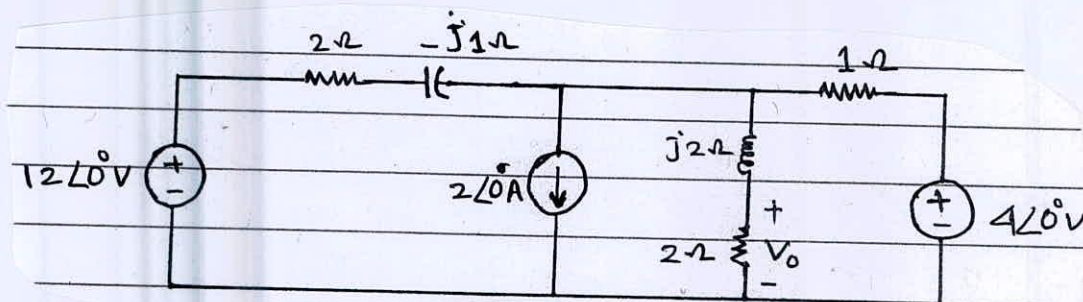 2Ω -j1Ω 1Ω
12∠0°V + - 2∠0°A j2Ω + 2Ω V₀ - + - 4∠0°V